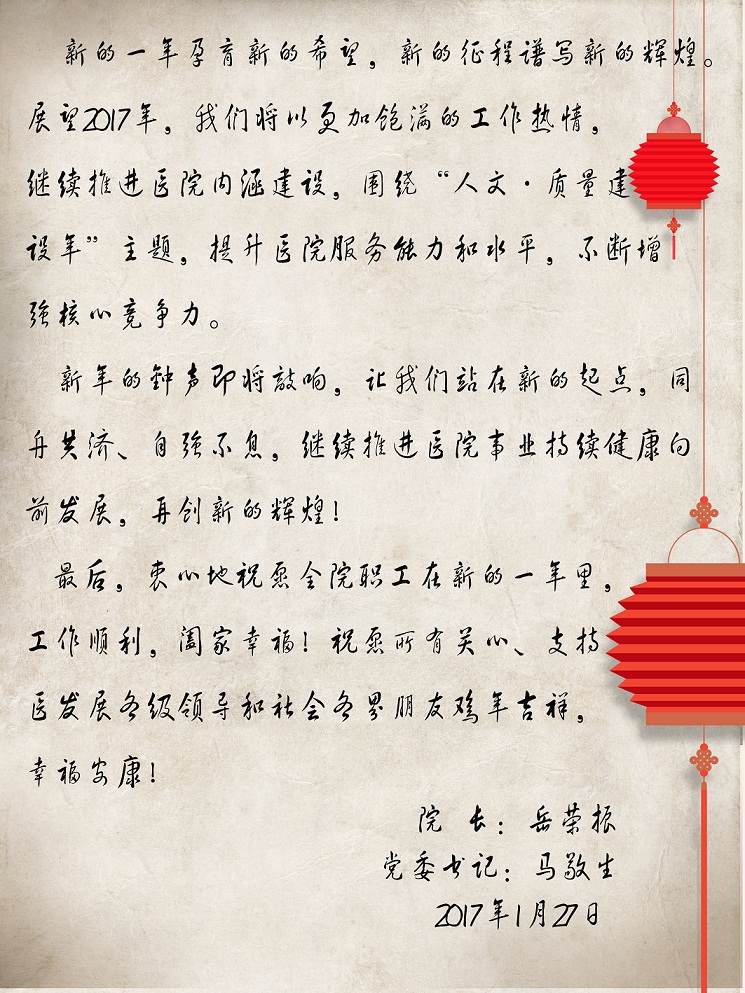 新的一年孕育新的希望，新的征程谱写新的辉煌。
展望2017年，我们将以更加饱满的工作热情，
继续推进医院内涵建设，围绕“人文·质量建
设年”主题，提升医院服务能力和水平，不断增
强核心竞争力。
新年的钟声即将敲响，让我们站在新的起点，同
舟共济、自强不息，继续推进医院事业持续健康向
前发展，再创新的辉煌！
最后，衷心地祝愿全院职工在新的一年里，
工作顺利，阖家幸福！祝愿所有关心、支持
医发展各级领导和社会各界朋友鸡年吉祥，
幸福安康！
院 长：岳荣振
党委书记：马敬生
2017年1月27日